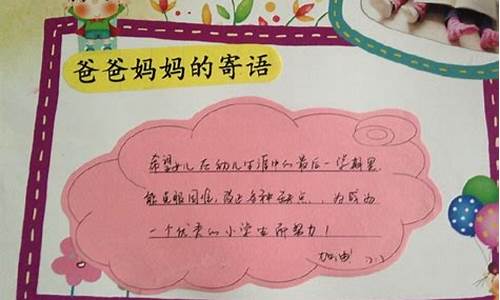 爸爸妈妈的寄语
希望女儿在幼儿生涯中的最后一学期里
能克服困难,改正各种缺点,为成为
一个优秀的小学生所努力!
加油!